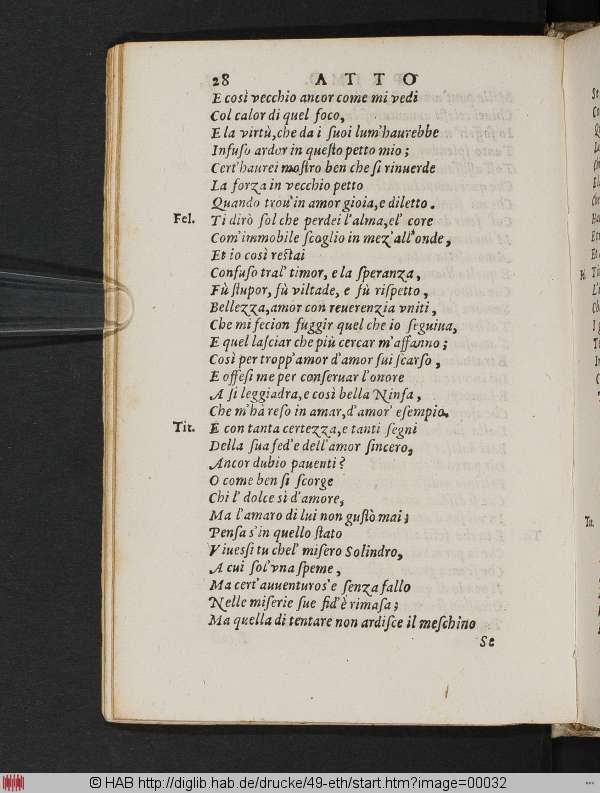 28 ATTO
E così vecchio ancor come mi vedi
Col calor di quel foco,
E la virtù, che da i ſuoi lum'haurebbe
Infuſo ardor in queſto petto mio;
Cert'haurei moſtro ben che ſi rinuerde
La forza in vecchio petto
Quando trou'in amor gioia, e diletto.
Fel. Ti dirò ſol che perdei l'alma, el' core
Com'immobile ſcoglio in mez'all'onde,
Et io così reſtai
Confuſo tral' timor, e la ſperanza,
Fù ſtupor, fù viltade, e fù riſpetto,
Bellezza, amor con reuerenzia vniti,
Che mi fecion fuggir quel che io ſeguiua,
E quel laſciar che più cercar m'affanno;
Così per tropp'amor d'amor fui ſcarſo,
E offeſi me per conſeruar l'onore
A ſi leggiadra, e così bella Ninfa,
Che m'hà reſo in amar, d'amor' eſempio.
Tit. E con tanta certezza, e tanti ſegni
Della ſua fed' e dell'amor ſincero,
Ancor dubio pauenti?
O come ben ſi ſcorge
Chi l' dolce sì d'amore,
Ma l'amaro di lui non guſtò mai;
Penſa s'in quello ſtato
Viueſſi tu chel' miſero Solindro,
A cui ſol'vna ſpeme,
Ma cert'auuenturos'e ſenza fallo
Nelle miſerie ſue fid'è rimaſa;
Ma quella di tentare non ardiſce il meſchino
Se
© HAB http://diglib.hab.de/drucke/49-eth/start.htm?image=00032